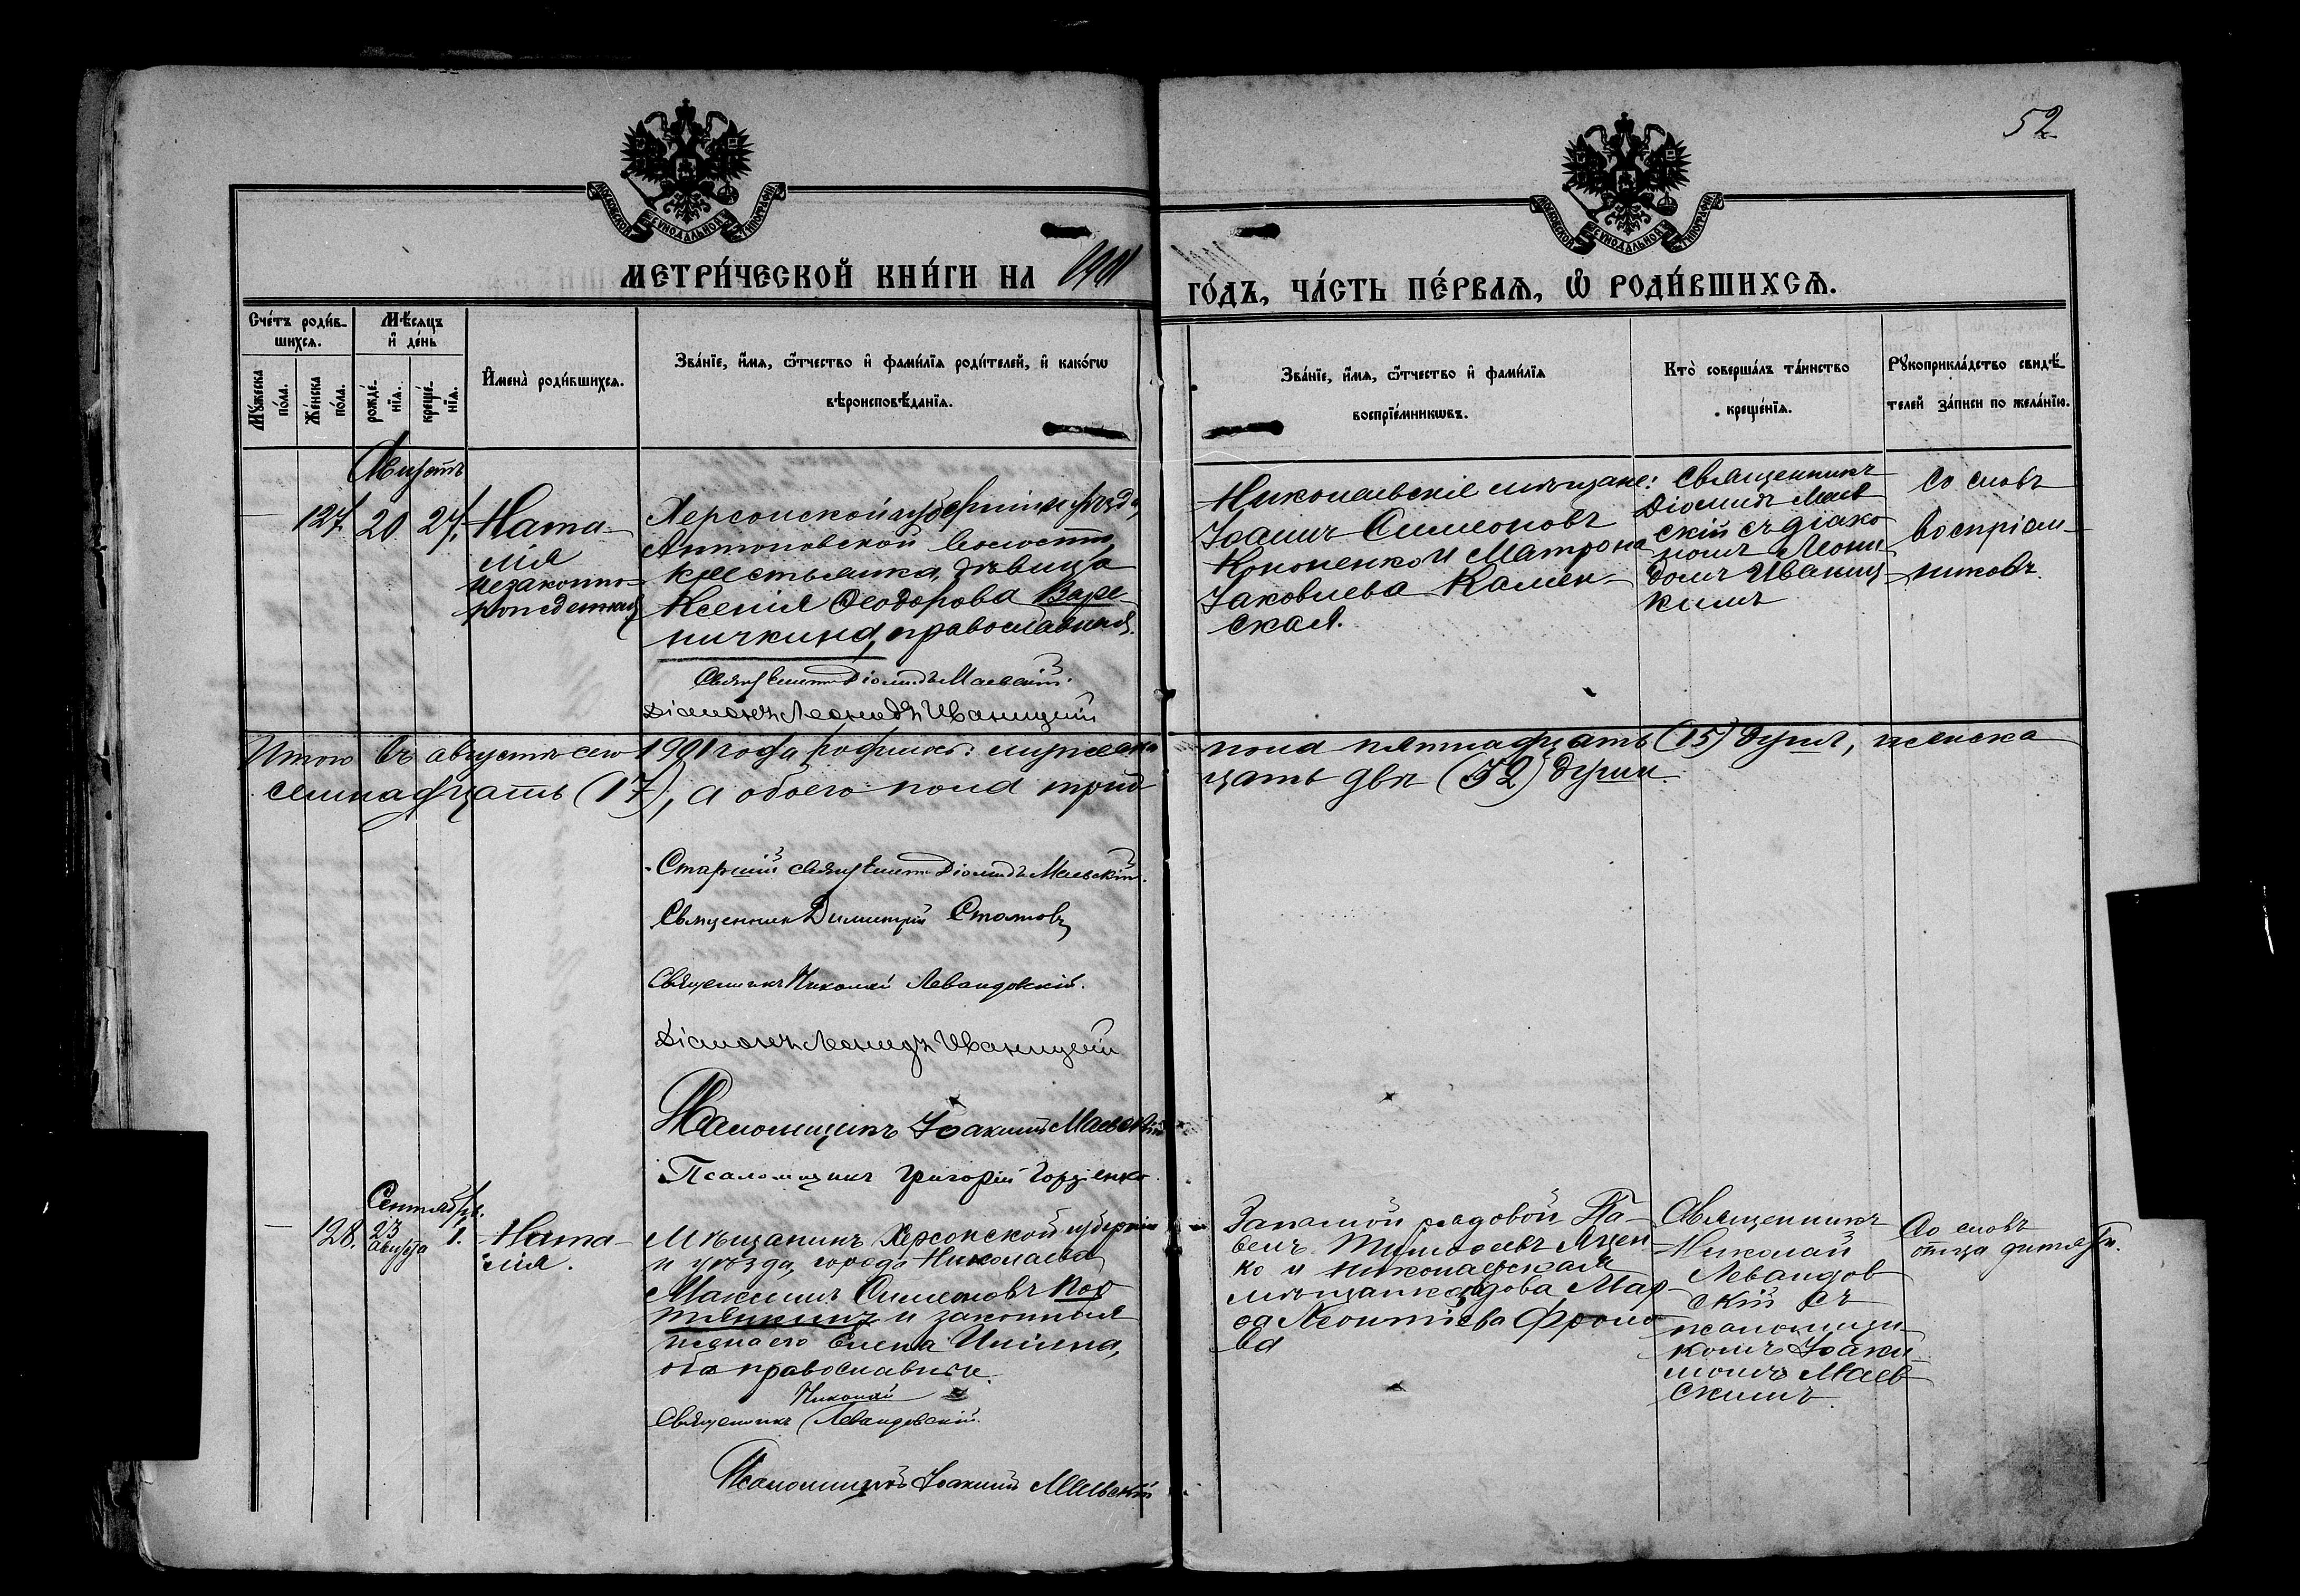 52
МОСКОВСКОЙ СѴНОДАЛЬНОЙ ТИПОГРАФІИ
МОСКОВСКОЙ СѴНОДАЛЬНОЙ ТИПОГРАФІИ
МЕТРИ́ЧЕСКОЙ КНИ́ГИ НА 1901
ГО́ДЪ, ЧА́СТЬ ПЕ́РВАѦ, Ѡ҆ РОДИ́ВШИХСѦ.
Сче́тъ роди́в-
шихсѧ.
Мꙋ́жеска по́ла.
Же́нска по́ла.
Мѣ́сѧцъ
и҆ де́нь
рожде́нїѧ.
креще́нїѧ.
И҆мена̀ роди́вшихсѧ.
Зва́нїе, и҆́мѧ, ѻ҆́тчество и҆ фами́лїѧ роди́телей, и҆ како́гѡ
вѣроисповѣ́данїѧ.
Зва́нїе, и҆́мѧ, ѻ҆́тчество и҆ фами́лїѧ
воспрїе́мникѡвъ.
Кто̀ соверша́лъ та́инство
креще́нїѧ.
Рꙋкоприкла́дство свидѣ́-
телей за́писи по жела́нїю.
Августъ
— 127. 20 27. Ната-
лія
незаконно-
рожденная
Херсонской губерніи и уезда,
Антоновской волости,
крестьянка, дѣвица
Ксенія Ѳеодорова Варе-
ничкина, православная.
Священникъ Діомидъ Маевскій.
Діаконъ Леонидъ Иваницкій
Николаевскіе мѣщане:
Іоаннъ Симеоновъ
Кононенко и Матрона
Іаковлева Камен-
ская.
Священникъ
Діомидъ Маев
скій съ діако
номъ Леони-
домъ Иваниц
кимъ
Со словъ
воспріем-
никовъ.
Итого въ августѣ сего 1901 года родилось: мужеска пола пятнадцать (15) душъ, женска
семнадцать (17), а обоего пола трид- цать двѣ (32) души
Старшій священникъ Діомидъ Маевскій.
Священникъ Димитрій
Священникъ Николай Левандовскій.
Діаконъ Леонидъ Иваницкій
Псаломщикъ Іоакимъ Маевскій
Псаломщикъ Григорій Гордіенко.
Сентябрь.
— 128. 23 августа 1. Ната-
лія.
Мѣщанинъ Херсонской губерніи
и уѣзда, города Николаева
Максимъ Симеоновъ
и законная
жена его Елена Иліина,
оба православные.
Николай
Священникъ Левандовскій.
Псаломщикъ Іоакимъ Маевскій
Запасной рядовой Па-
велъ Тимоѳеевъ Яцен-
ко и николаевская
мѣщанка вдова Мар-
ѳа Леонтіева Фроло
ва
Священникъ
Николай
Левандов
скій съ
псаломщи-
комъ Іоаки
момъ Маев-
скимъ.
Со словъ
отца дитяти.